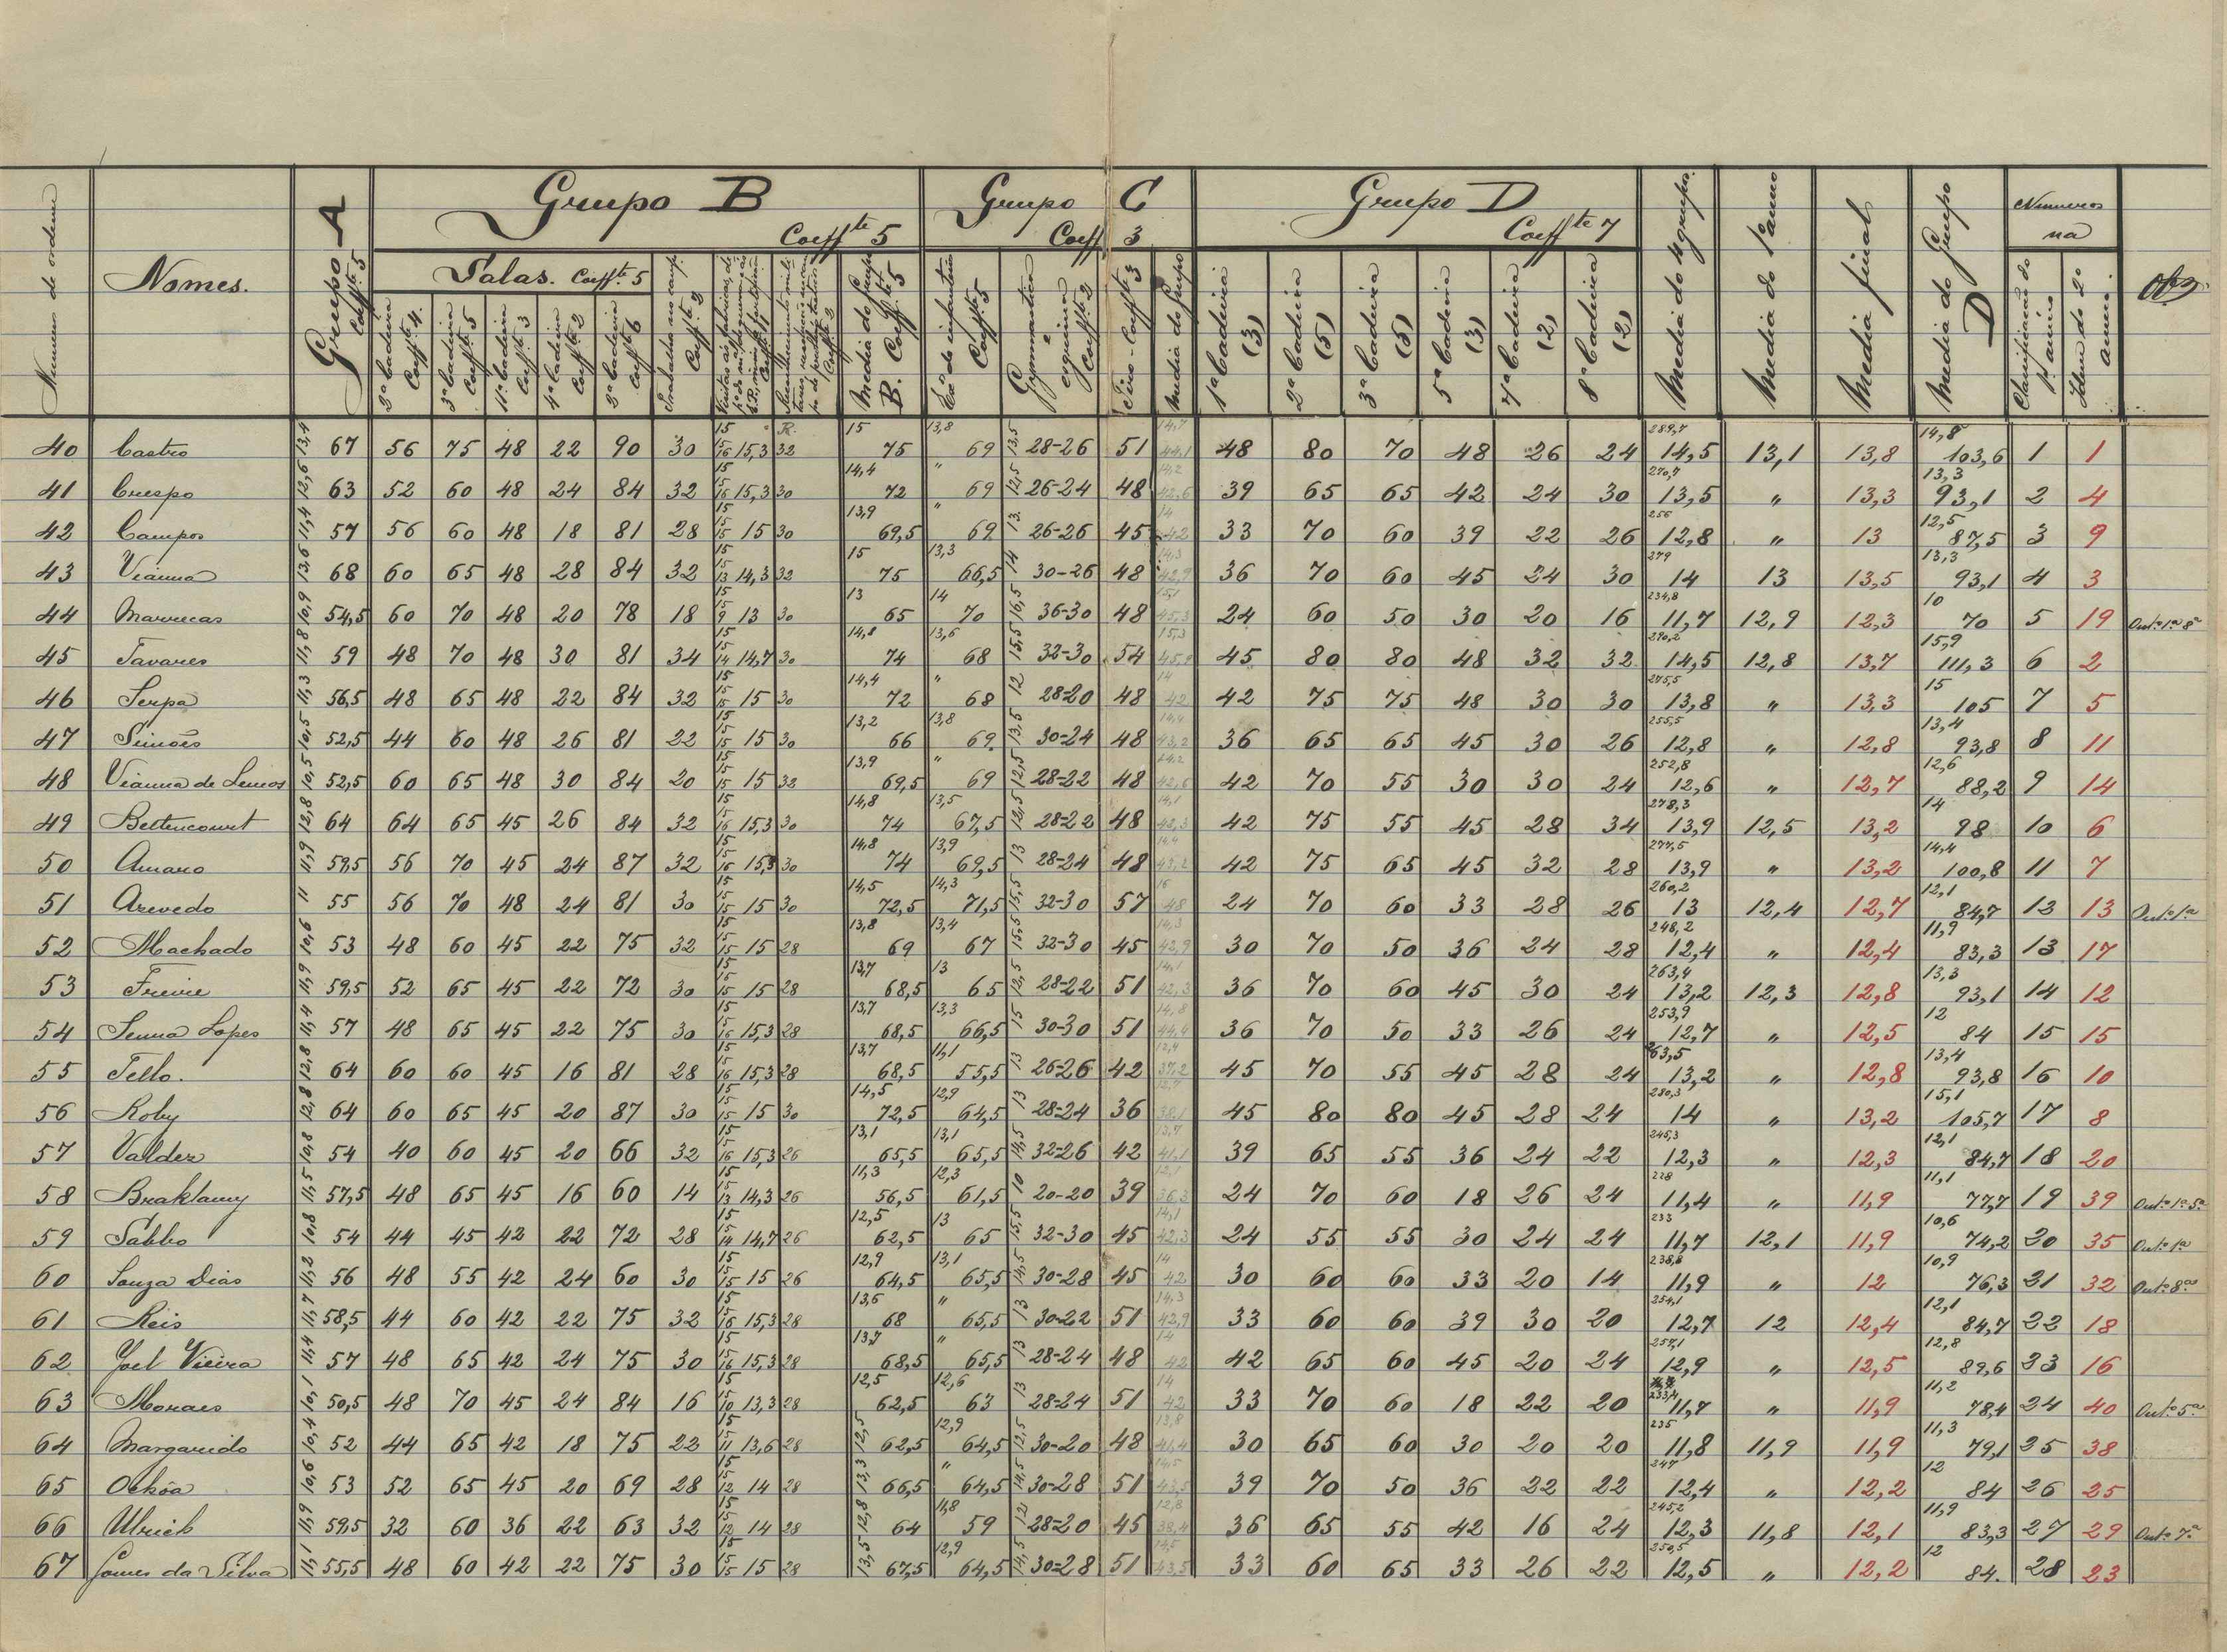 Numero de ordem
Nomes.
Grupo A Coeff.te 5
Grupo B Coeffte 5
Grupo C Coeff 3
Grupo D Coeffte 7
Media do 4 grupos.
Media do 1º anno
Media final
Media do Grupo D
Numeros na
Obs.
Salas. Coeff.te 5
3ª Cadeira Coeff.te 4.
3ª Cadeira Coeff.te 5
11ª Cadeira Coeff.te 3
4ª Cadeira Coeff.te 2
3ª Cadeira Coeff.te 6
Trabalhos no camp. Coeff.te 2
Media do Grupo B. Coeff.te 5
Exº de infantaria Coeff.te 5
Gymnastica e esgrima Coeff.te 2
Tiro - Coeff.te 3
Media do Grupo
1ª Cadeira (3)
2ª Cadeira (5)
3ª Cadeira (5)
5ª Cadeira (3)
7ª Cadeira (2)
8ª Cadeira (2)
Classificação do 1º anno
Idem do 2º anno.
40 Castro 13,4 67 56 75 48 22 90 30 15 15 16 15,3 R. 32 15 75 13,8 69 13,5 28-26 51 14,7 44,1 48 80 70 48 26 24 289,7 14,5 13,1 13,8 14,8 103,6 1 1
41 Crespo 12,6 63 52 60 48 24 84 32 15 15 16 15,3 30 14,4 72 " 69 12,5 26-24 48 14,2 42,6 39 65 65 42 24 30 270,7 13,5 " 13,3 13,3 93,1 2 4
42 Campos 11,4 57 56 60 48 18 81 28 15 15 15 15 30 13,9 69,5 " 69 13 26-26 45 14 42 33 70 60 39 22 26 256 12,8 " 13 12,5 87,5 3 9
43 Vianna 13,6 68 60 65 48 28 84 32 15 15 13 14,3 32 15 75 13,3 66,5 14 30-26 48 14,3 42,9 36 70 60 45 24 30 279 14 13 13,5 13,3 93,1 4 3
44 Marrecas 10,9 54,5 60 70 48 20 78 18 15 15 9 13 30 13 65 14 70 16,5 36-30 48 15,1 45,3 24 60 50 30 20 16 234,8 11,7 12,9 12,3 10 70 5 19 Out.º 1.ª 8ª
45 Tavares 11,8 59 48 70 48 30 81 34 15 15 14 14,7 30 14,8 74 13,6 68 15,5 32-30 54 15,3 45,9 45 80 80 48 32 32 290,2 14,5 12,8 13,7 15,9 111,3 6 2
46 Serpa 11,3 56,5 48 65 48 22 84 32 15 15 15 15 30 14,4 72 " 68 12 28-20 48 14 42 42 75 75 48 30 30 275,5 13,8 " 13,3 15 105 7 5
47 Simões 10,5 52,5 44 60 48 26 81 22 15 15 15 15 30 13,2 66 13,8 69 13,5 30-24 48 14,4 43,2 36 65 65 45 30 26 255,5 12,8 " 12,8 13,4 93,8 8 11
48 Vianna de Lemos 10,5 52,5 60 65 48 30 84 20 15 15 15 15 32 13,9 69,5 " 69 12,5 28-22 48 14,2 42,6 42 70 55 30 30 24 252,8 12,6 " 12,7 12,6 88,2 9 14
49 Bettencourt 12,8 64 64 65 45 26 84 32 15 15 16 15,3 30 14,8 74 13,5 67,5 12,5 28-22 48 14,1 42,3 42 75 55 45 28 34 278,3 13,9 12,5 13,2 14 98 10 6
50 Amaro 11,9 59,5 56 70 45 24 87 32 15 15 16 15,3 30 14,8 74 13,9 69,5 13 28-24 48 14,4 43,2 42 75 65 45 32 28 277,5 13,9 " 13,2 14,4 100,8 11 7
51 Azevedo 11 55 56 70 48 24 81 30 15 15 15 15 30 14,5 72,5 14,3 71,5 15,5 32-30 57 16 48 24 70 60 33 28 26 260,2 13 12,4 12,7 12,1 84,7 12 13 Out.º 1.ª
52 Machado 10,6 53 48 60 45 22 75 32 15 15 15 15 28 13,8 69 13,4 67 15,5 32-30 45 14,3 42,9 30 70 50 36 24 28 248,2 12,4 " 12,4 11,9 83,3 13 17
53 Freire 11,9 59,5 52 65 45 22 72 30 15 15 15 15 28 13,7 68,5 13 65 12,5 28-22 51 14,1 42,3 36 70 60 45 30 24 263,4 13,2 12,3 12,8 13,3 93,1 14 12
54 Senna Lopes 11,4 57 48 65 45 22 75 30 15 15 16 15,3 28 13,7 68,5 13,3 66,5 15 30-30 51 14,8 44,4 36 70 50 33 26 24 253,9 12,7 " 12,5 12 84 15 15
55 Tello. 12,8 64 60 60 45 16 81 28 15 15 16 15,3 28 13,7 68,5 11,1 55,5 13 26-26 42 12,4 37,2 45 70 55 45 28 24 263,5 13,2 " 12,8 13,4 93,8 16 10
56 Roby 12,8 64 60 65 45 20 87 30 15 15 15 15 30 14,5 72,5 12,9 64,5 13 28-24 36 12,7 38,1 45 80 80 45 28 24 280,3 14 " 13,2 15,1 105,7 17 8
57 Valdez 10,8 54 40 60 45 20 66 32 15 15 16 15,3 26 13,1 65,5 13,1 65,5 14,5 32-26 42 13,7 41,1 39 65 55 36 24 22 245,3 12,3 " 12,3 12,1 84,7 18 20
58 Braklamy 11,5 57,5 48 65 45 16 60 14 15 15 13 14,3 26 11,3 56,5 12,3 61,5 10 20-20 39 12,1 36,3 24 70 60 18 26 24 228 11,4 " 11,9 11,1 77,7 19 39 Out.º 1.ª 5.ª
59 Sabbo 10,8 54 44 45 42 22 72 28 15 15 14 14,7 26 12,5 62,5 13 65 15,5 32-30 45 14,1 42,3 24 55 55 30 24 24 233 11,7 12,1 11,9 10,6 74,2 20 35 Out.º 1.ª
60 Souza Dias 11,2 56 48 55 42 24 60 30 15 15 15 15 26 12,9 64,5 13,1 65,5 14,5 30-28 45 14 42 30 60 60 33 20 14 238,8 11,9 " 12 10,9 76,3 21 32 Out.º 8.ª
61 Reis 11,7 58,5 44 60 42 22 75 32 15 15 16 15,3 28 13,6 68 " 65,5 13 30-22 51 14,3 42,9 33 60 60 39 30 20 254,1 12,7 12 12,4 12,1 84,7 22 18
62 Joel Vieira 11,4 57 48 65 42 24 75 30 15 15 16 15,3 28 13,7 68,5 " 65,5 13 28-24 48 14 42 42 65 60 45 20 24 257,1 12,9 " 12,5 12,8 89,6 23 16
63 Moraes 10,1 50,5 48 70 45 24 84 16 15 15 10 13,3 28 12,5 62,5 12,6 63 13 28-24 51 14 42 33 70 60 18 22 20 233,4 11,7 " 11,9 11,2 78,4 24 40 Out.º 5.ª
64 Margarido 10,4 52 44 65 42 18 75 22 15 15 11 13,6 28 12,5 62,5 12,9 64,5 12,5 30-20 48 13,8 41,4 30 65 60 30 20 20 235 11,8 11,9 11,9 11,3 79,1 25 38
65 Ochôa 10,6 53 52 65 45 20 69 28 15 15 12 14 28 13,3 66,5 " 64,5 14,5 30-28 51 14,5 43,5 39 70 50 36 22 22 247 12,4 " 12,2 12 84 26 25
66 Ulrich 11,9 59,5 32 60 36 22 63 32 15 15 12 14 28 12,8 64 11,8 59 12 28-20 45 12,8 38,4 36 65 55 42 16 24 245,2 12,3 11,8 12,1 11,9 83,3 27 29 Out.º 7.ª
67 Gomes da Silva 11,1 55,5 48 60 42 22 75 30 15 15 15 15 28 13,5 67,5 12,9 64,5 14,5 30-28 51 14,5 43,5 33 60 65 33 26 22 250,5 12,5 " 12,2 12 84. 28 23